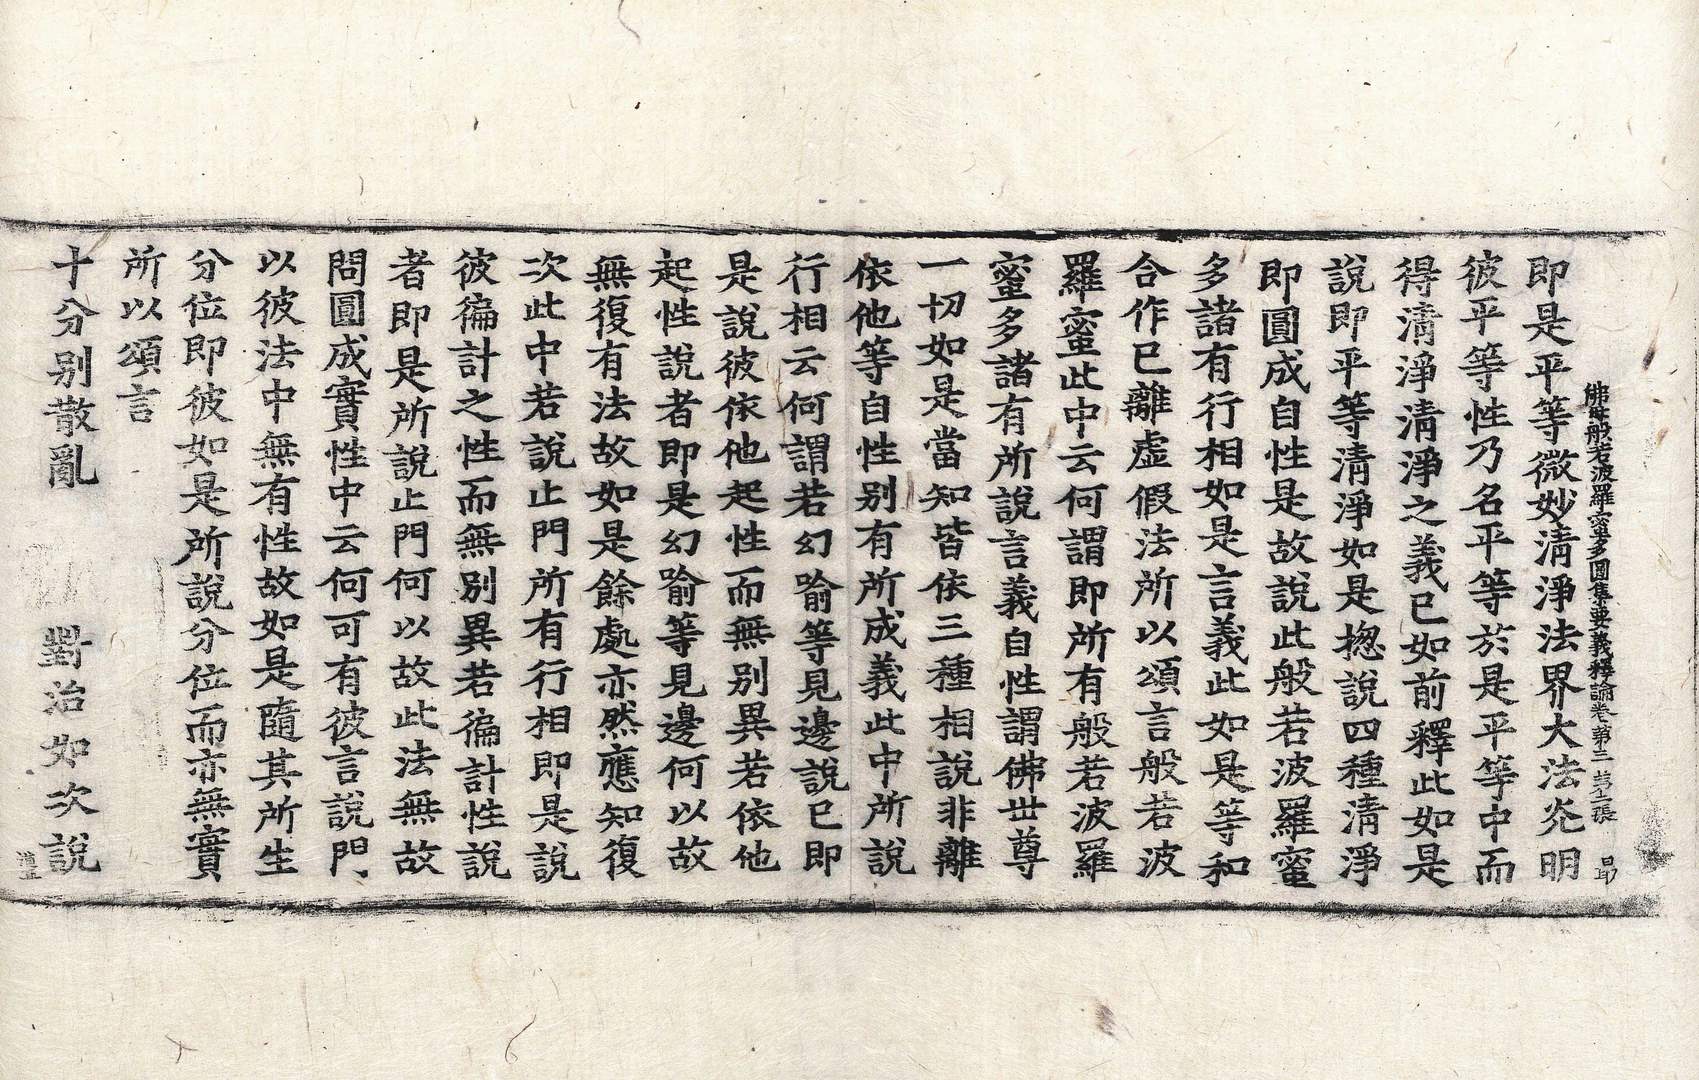 佛母般若波羅蜜多圓集要義釋論卷第三 第七張 昻
即是平等微妙清淨法界大法炎明
彼平等性乃名平等於是平等中而
得清淨清淨之義已如前釋此如是
說即平等清淨如是揔說四種清淨
即圓成自性是故說此般若波羅蜜
多諸有行相如是言義此如是等和
合作已離虛假法所以頌言般若波
羅蜜此中云何謂即所有般若波羅
蜜多諸有所說言義自性謂佛世尊
一切如是當知皆依三種相說非離
依他等自性别有所成義此中所說
行相云何謂若幻喻等見邊說已即
是說彼依他起性而無别異若依他
起性說者即是幻喻等見邊何以故
無復有法故如是餘處亦然應知復
次此中若說止門所有行相即是說
彼徧計之性而無别異若徧計性說
者即是所說止門何以故此法無故
問圓成實性中云何可有彼言說門
以彼法中無有性故如是隨其所生
分位即彼如是所說分位而亦無實
所以頌言
十分别散亂 對治如次說